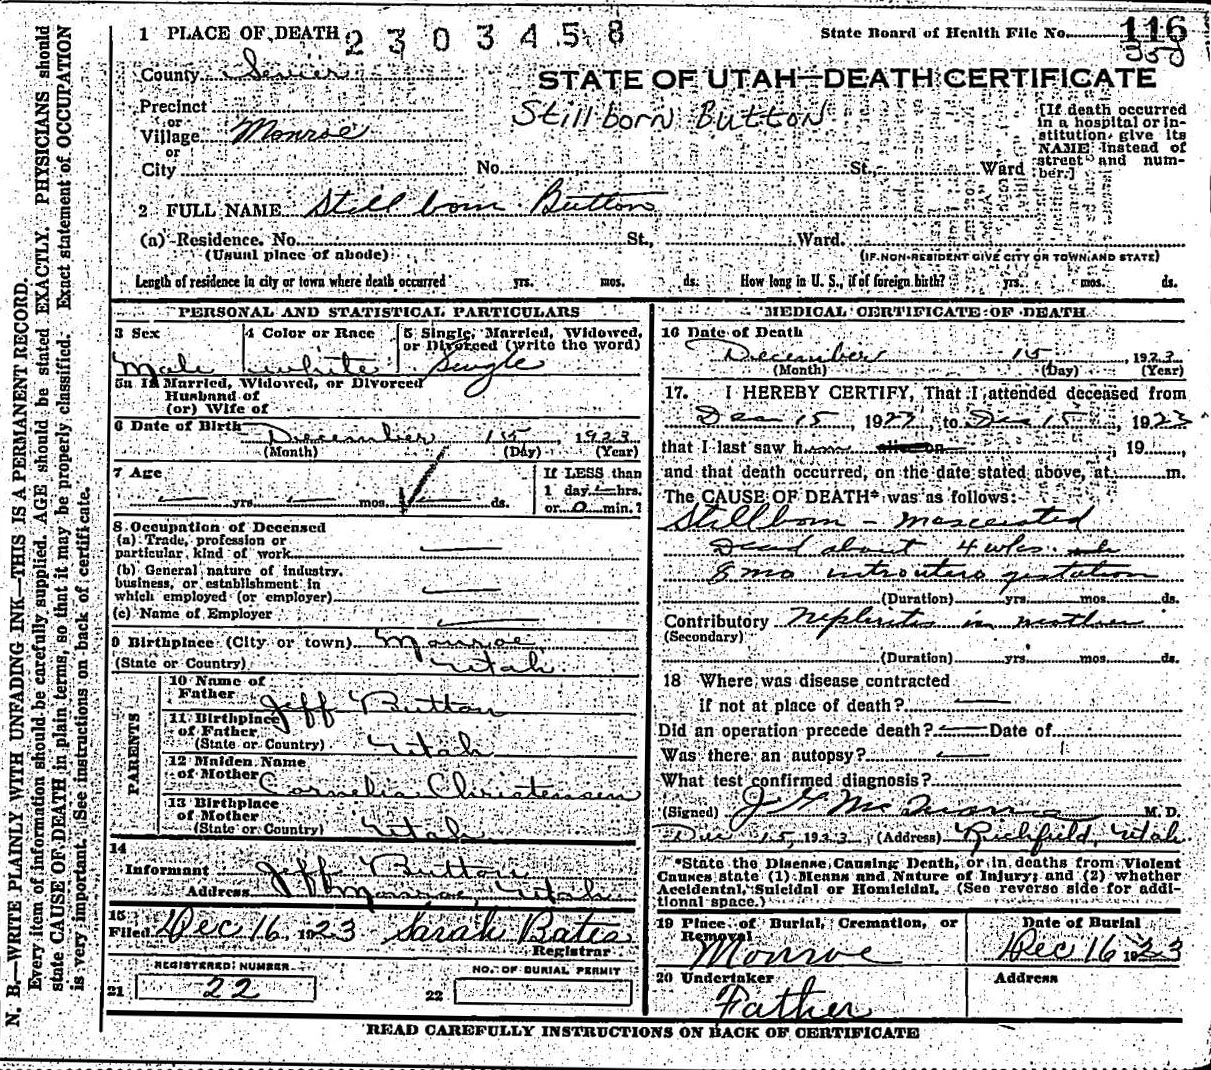 N. B.—WRITE PLAINLY WITH UNFADING INK—THIS IS A PERMANENT RECORD.
Every item of information should be carefully supplied. AGE should be stated EXACTLY. PHYSICIANS should
state CAUSE OF DEATH in plain terms, so that it may be properly classified. Exact statement of OCCUPATION
is very important. (See instructions on back of certificate.
1 PLACE OF DEATH 2303458
State Board of Health File No. 116
County Sevier
STATE OF UTAH—DEATH CERTIFICATE
Precinct
or
Village Monroe
or
City No. St., Ward
Stillborn Button
[If death occurred
in a hospital or in-
stitution, give its
NAME instead of
street and num-
ber.]
2 FULL NAME Still born Button
(a) Residence. No. St., Ward.
(Usual place of abode) (IF NON-RESIDENT GIVE CITY OR TOWN AND STATE)
Length of residence in city or town where death occurred yrs. mos. ds. How long in U. S., if of foreign birth? yrs. mos. ds.
PERSONAL AND STATISTICAL PARTICULARS
3 Sex 4 Color or Race 5 Single, Married, Widowed,
or Divorced (write the word)
Male white Single
5a If Married, Widowed, or Divorced
Husband of
(or) Wife of
6 Date of Birth December 15, 1923
(Month) (Day) (Year)
7 Age — yrs. — mos. — ds.
If LESS than
1 day — hrs.
or 0 min.?
8 Occupation of Deceased
(a) Trade, profession or
particular, kind of work —
(b) General nature of industry,
business, or establishment in
which employed (or employer) —
(c) Name of Employer —
9 Birthplace (City or town) Monroe
(State or Country) Utah
PARENTS
10 Name of
Father Jeff Button
11 Birthplace
of Father
(State or Country) Utah
12 Maiden Name
of Mother Cornelia Christensen
13 Birthplace
of Mother
(State or Country) Utah
14
Informant Jeff Button
Address Monroe, Utah
15
Filed Dec 16, 1923 Sarah Bates
Registrar
REGISTERED NUMBER NO. OF BURIAL PERMIT
21 22 22
MEDICAL CERTIFICATE OF DEATH
16 Date of Death
December 15, 1923
(Month) (Day) (Year)
17. I HEREBY CERTIFY, That I attended deceased from
Dec 15, 1923, to Dec 15, 1923
that I last saw h 19
and that death occurred, on the date stated above, at m.
The CAUSE OF DEATH* was as follows:
Stillborn – mascerated
Dead about 4 wks.
8 mo intrautero gestation
(Duration) yrs. mos. ds.
Contributory Nephritis in mother
(Secondary)
(Duration) yrs. mos. ds.
18 Where was disease contracted
if not at place of death? —
Did an operation precede death? — Date of
Was there an autopsy? —
What test confirmed diagnosis?
(Signed) M. D.
Dec 15, 1923 (Address) Richfield, Utah
*State the Disease Causing Death, or in deaths from Violent
Causes state (1) Means and Nature of Injury; and (2) whether
Accidental, Suicidal or Homicidal. (See reverse side for addi-
tional space.)
19 Place of Burial, Cremation, or
Removal Date of Burial
Monroe Dec 16 1923
20 Undertaker Address
Father
READ CAREFULLY INSTRUCTIONS ON BACK OF CERTIFICATE